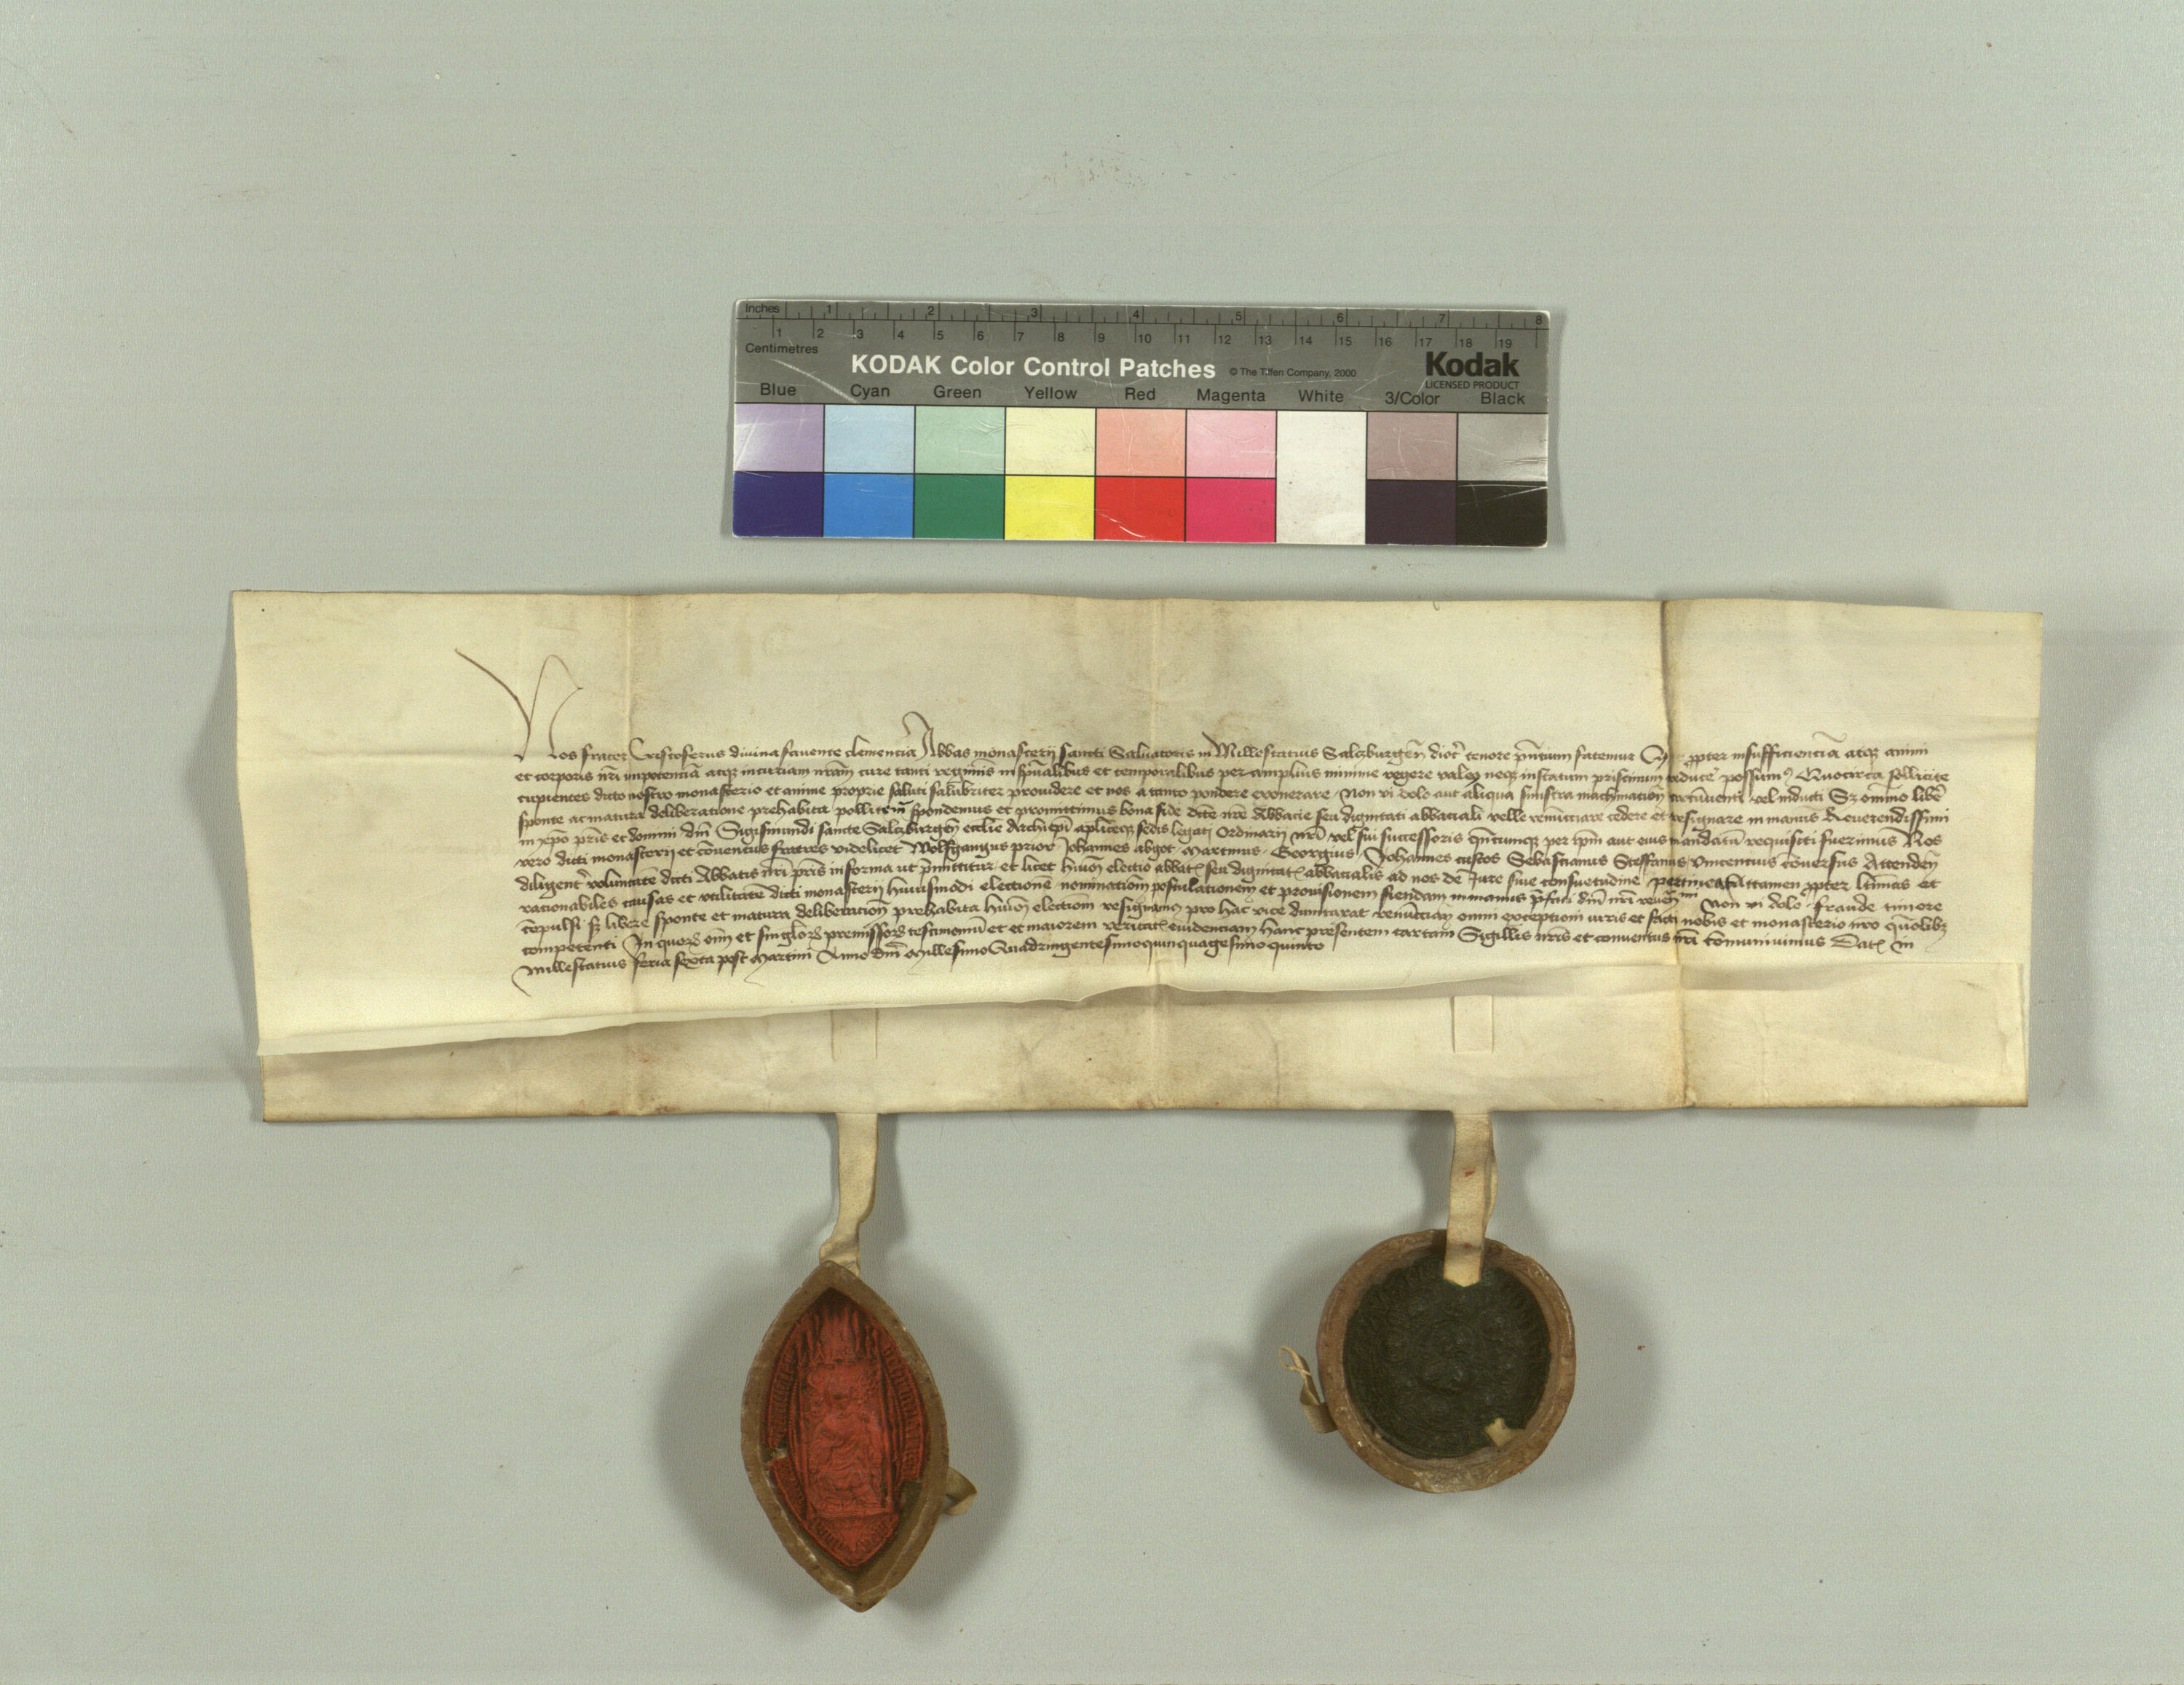 Inches 1 2 3 4 5 6 7 8
1 2 3 4 5 6 7 8 9 10 11 12 13 14 15 16 17 18 19
Centimetres
KODAK Color Control Patches © The Tiffen Company, 2000 Kodak
LICENSED PRODUCT
Blue Cyan Green Yellow Red Magenta White 3/Color Black
Nos frater Cristoferus divina favente clemencia Abbas monasterij sancti Salvatoris in Millestatuis Salczburgeñ dioc̄ tenore pn̄tium fatemur ꝓpter insufficienciā atqꝫ animi
et corporis nr̄i impotenciā atqꝫ incuriam nr̄am cure tanti regiminis in spūalibus et temporalibus per amplius minime regere valemꝰ neqꝫ in statum pristinum reducere possumꝰ Quocirca sollicite
cupientes dicto nostro monasterio et anime proprie saluti salubriter providere et nos a tanto pondere exonerare Non vi dolo aut aliqua sinistra machinatioñ circūventi vel inducti Sꝫ om̄ino liber̄
sponte ac matura deliberatione prehabita spondemus et promittimus bona fide dc̄te nr̄e Abbacie seu dignitati abbaciali velle renūcciare cedere et resignare in manus Reverendissimi
in xp̄o pr̄is et domini dn̄i Sigismundi sancte Salczburgeñ eccl̄ie Archiep̄i apl̄iceqꝫ sedis legati Ordinarij nr̄i vel sui successoris qn̄cumqꝫ per ip̄m aut eius mandatū requisiti fuerimus Nos
vero dicti monasterij et cōventus fratres videlicet Wolfgangus prior Johannes abgot Martinus Georgius Johannes custos Sebastianus Steffanus Vincencius cōversus Attendeñ
diligent̄ voluntatē dicti Abbatis nr̄i pr̄is in forma ut p̄mittitur et licet huiōi electio abbatis seu dignitatis abbacialis ad nos de Jure sive consuetudine pertineat Attamen ꝓpter l̄timas et
racionabiles causas et utilitatē dicti monasterij huiusmodi electionē nominatiom̄ postulationem et provisionem fiendam in manus p̄fati dn̄i nr̄i reveᵐⁱ Non vi dolo fraude timore
cōpulsi sꝫ libere sponte et matura deliberatioñ prehabita huiōi electiom̄ resignamꝰ pro hac vice dumtaxat renūcciam̄ omni exceptioni iuris et facti nobis et monasterio nr̄o qūolibꝫ
competenti In quorꝫ om̄i et singlorꝫ premissorꝫ testimoniū et maiorem veritatis evidenciam hanc presentem cartam Sigillis nr̄is et conventus nr̄i com̄univimus Datꝫ in
Millestatuis feria sexta post Martini Anno dn̄i Millesimo Quadringentesimo quinquagesimo quinto